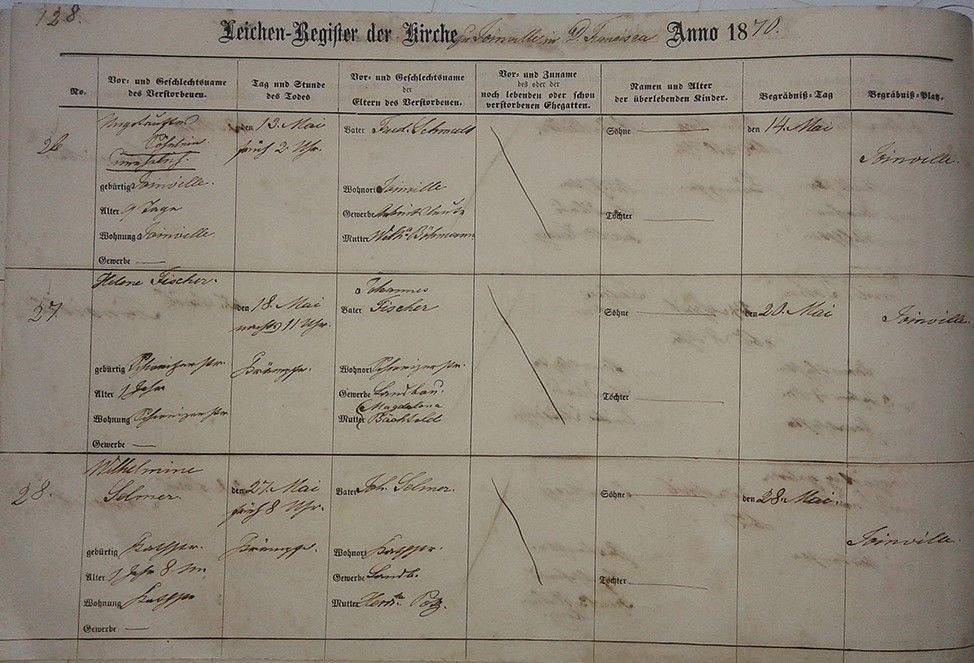 128.
Leichen-Register der Kirche zu Joinville in D. Francisca Anno 1870.
No.
Vor- und Geschlechtsname
des Verstorbenen.
Tag und Stunde
des Todes
Vor- und Geschlechtsname
der
Eltern des Verstorbenen.
Vor- und Zuname
des oder der
noch lebenden oder schon
verstorbenen Ehegatten.
Namen und Alter
der überlebenden Kinder.
Begräbniß-Tag
Begräbniß-Platz.
26
Ungetauftes
Söhnlein
gebürtig Joinville.
Alter 9 Tage
Wohnung Joinville
Gewerbe —
den 13. Mai
früh 2 Uhr.
Vater Ferd. Schmidt
Wohnort Joinville
Gewerbe Arbeitsleute
Mutter Wilh. Böhmann
Söhne —
Töchter —
den 14. Mai
Joinville.
27
Helene Fischer.
gebürtig Schweizerstr.
Alter 1 Jahr
Wohnung Schweizerstr
Gewerbe —
den 18. Mai
nachts 11 Uhr.
Krämpfe.
Johannes
Vater Fischer
Wohnort Schweizerstr.
Gewerbe Landbau.
Magdalena
Mutter Bächtold
Söhne —
Töchter —
den 20. Mai
Joinville.
28.
Wilhelmine
Selmer.
gebürtig
Alter 1 Jahr 8 Mn
Wohnung
Gewerbe —
den 27. Mai
früh 8 Uhr.
Krämpfe.
Vater Joh. Selmer.
Wohnort
Gewerbe Landb.
Mutter
Söhne —
Töchter —
den 28. Mai.
Joinville.